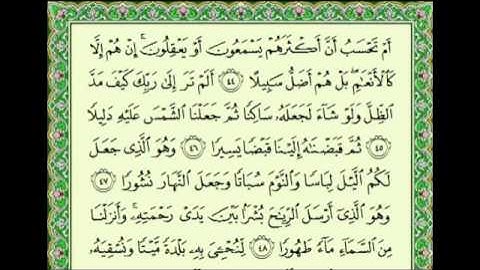 أَمْ تَحْسَبُ أَنَّ أَكْثَرَهُمْ يَسْمَعُونَ أَوْ يَعْقِلُونَ ۚ إِنْ هُمْ إِلَّا
كَٱلْأَنْعَٰمِ ۖ بَلْ هُمْ أَضَلُّ سَبِيلًا ٤٤ أَلَمْ تَرَ إِلَىٰ رَبِّكَ كَيْفَ مَدَّ
ٱلظِّلَّ وَلَوْ شَآءَ لَجَعَلَهُۥ سَاكِنًا ثُمَّ جَعَلْنَا ٱلشَّمْسَ عَلَيْهِ دَلِيلًا
٤٥ ثُمَّ قَبَضْنَٰهُ إِلَيْنَا قَبْضًا يَسِيرًا ٤٦ وَهُوَ ٱلَّذِى جَعَلَ
لَكُمُ ٱلَّيْلَ لِبَاسًا وَٱلنَّوْمَ سُبَاتًا وَجَعَلَ ٱلنَّهَارَ نُشُورًا ٤٧
وَهُوَ ٱلَّذِىٓ أَرْسَلَ ٱلرِّيَٰحَ بُشْرًۢا بَيْنَ يَدَىْ رَحْمَتِهِۦ ۚ وَأَنزَلْنَا
مِنَ ٱلسَّمَآءِ مَآءً طَهُورًا ٤٨ لِّنُحْۦِىَ بِهِۦ بَلْدَةً مَّيْتًا وَنُسْقِيَهُۥ